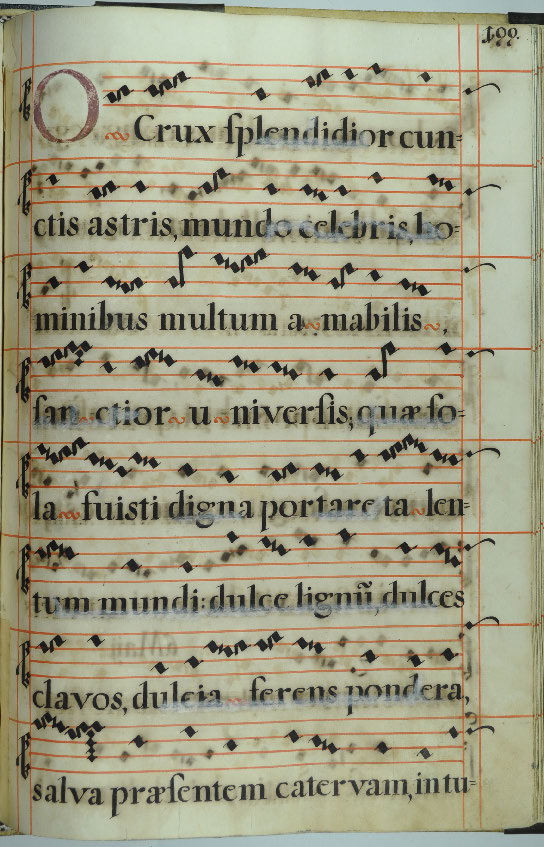 199.
O Crux ſplendidior cun=
ctis astris, mundo celebris, ho=
minibus multum a mabilis,
ſan ctior u niverſis, quæ ſo=
la fuisti digna portare ta len=
tum mundi: dulce lignũ, dulces
clavos, dulcia ferens pondera,
salva præſentem catervam, in tu=